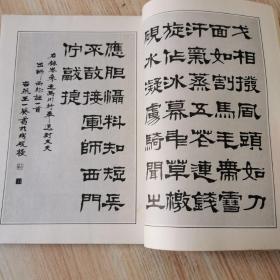 戈相撥風頭如刀
面如割馬毛帶雪
汗氣蒸五花連錢
旋作冰幕中草檄
硯水凝虜騎聞之
應膽懾料知短兵
不敢接軍師西門
佇獻捷
右錄岑參走馬川行奉送封大夫
出師西征詩一首